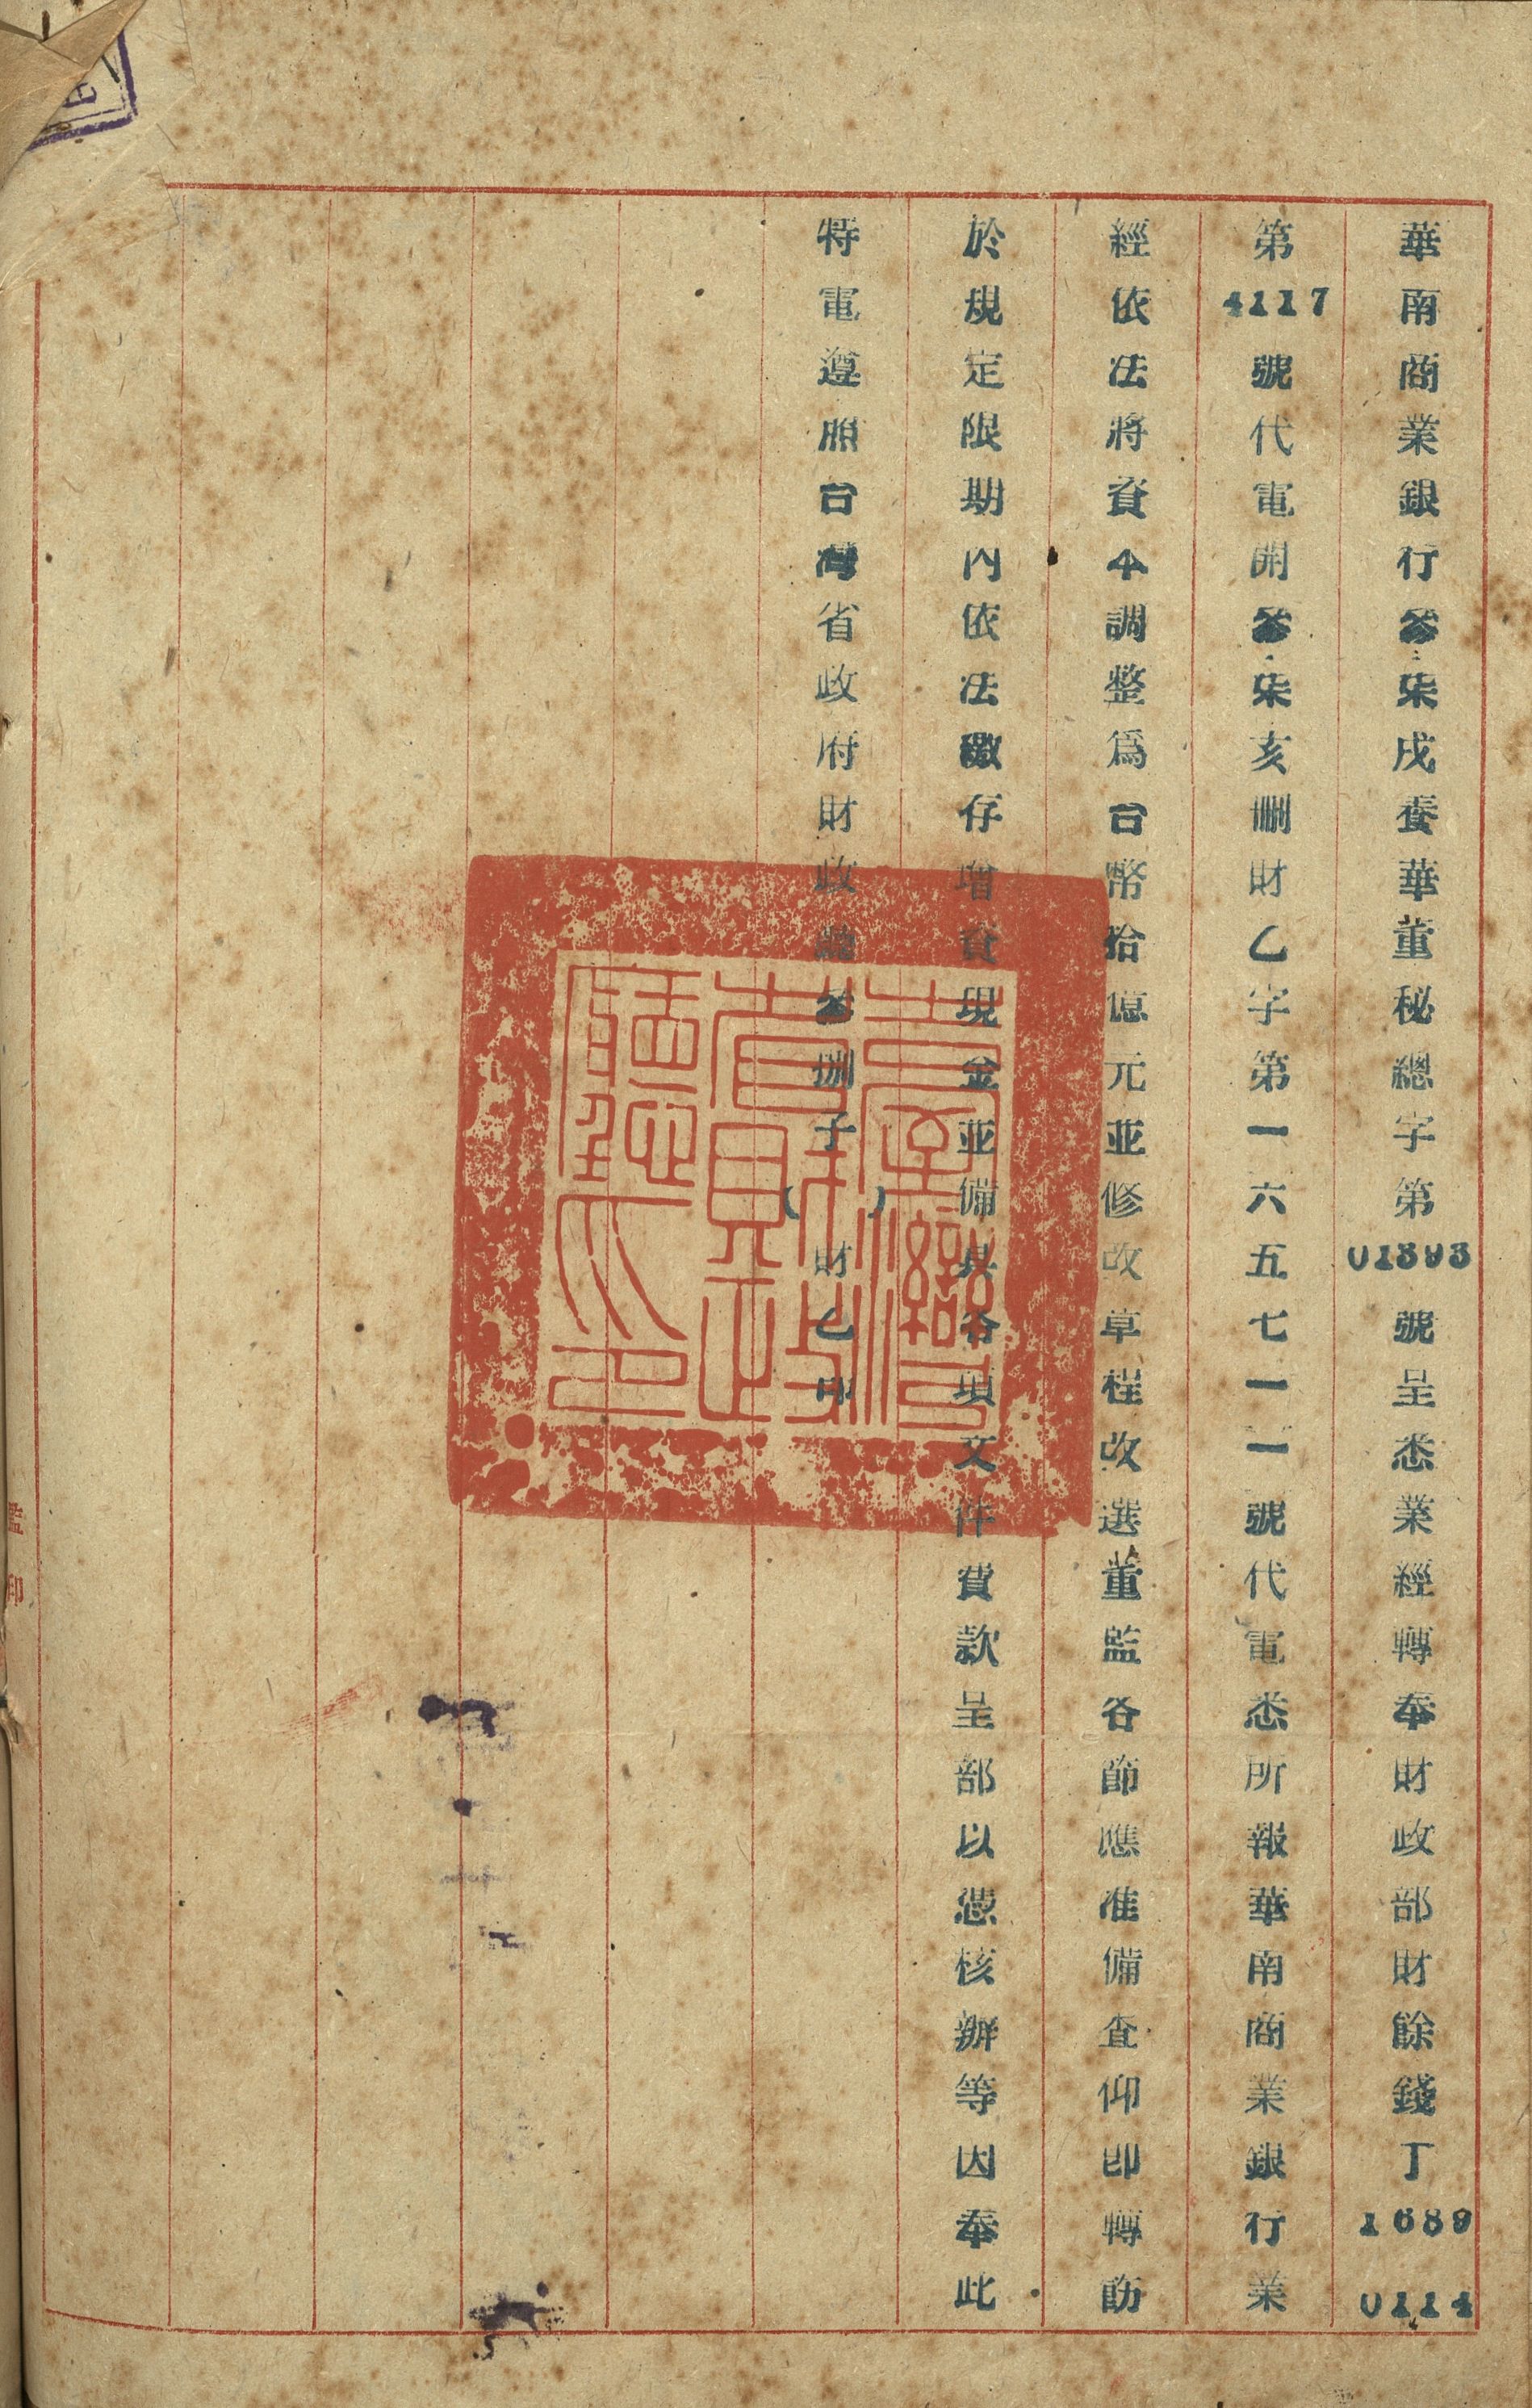 華南商業銀行叅柒戌養華董秘總字第01393號呈悉業經轉奉財政部財餘錢丁1689 0114
第4117號代電開叅柒亥刪財乙字第一六五七一一號代電悉所報華南商業銀行業
經依法將資本調整爲台幣拾億元並修改章程改選董監各節應准備查仰即轉飭
於規定限期內依法繳存增資現金並備具各項文件費款呈部以憑核辦等因奉此
特電遵照台灣省政府財政廳叅捌子( )財乙印
臺灣省財政廳印
監印